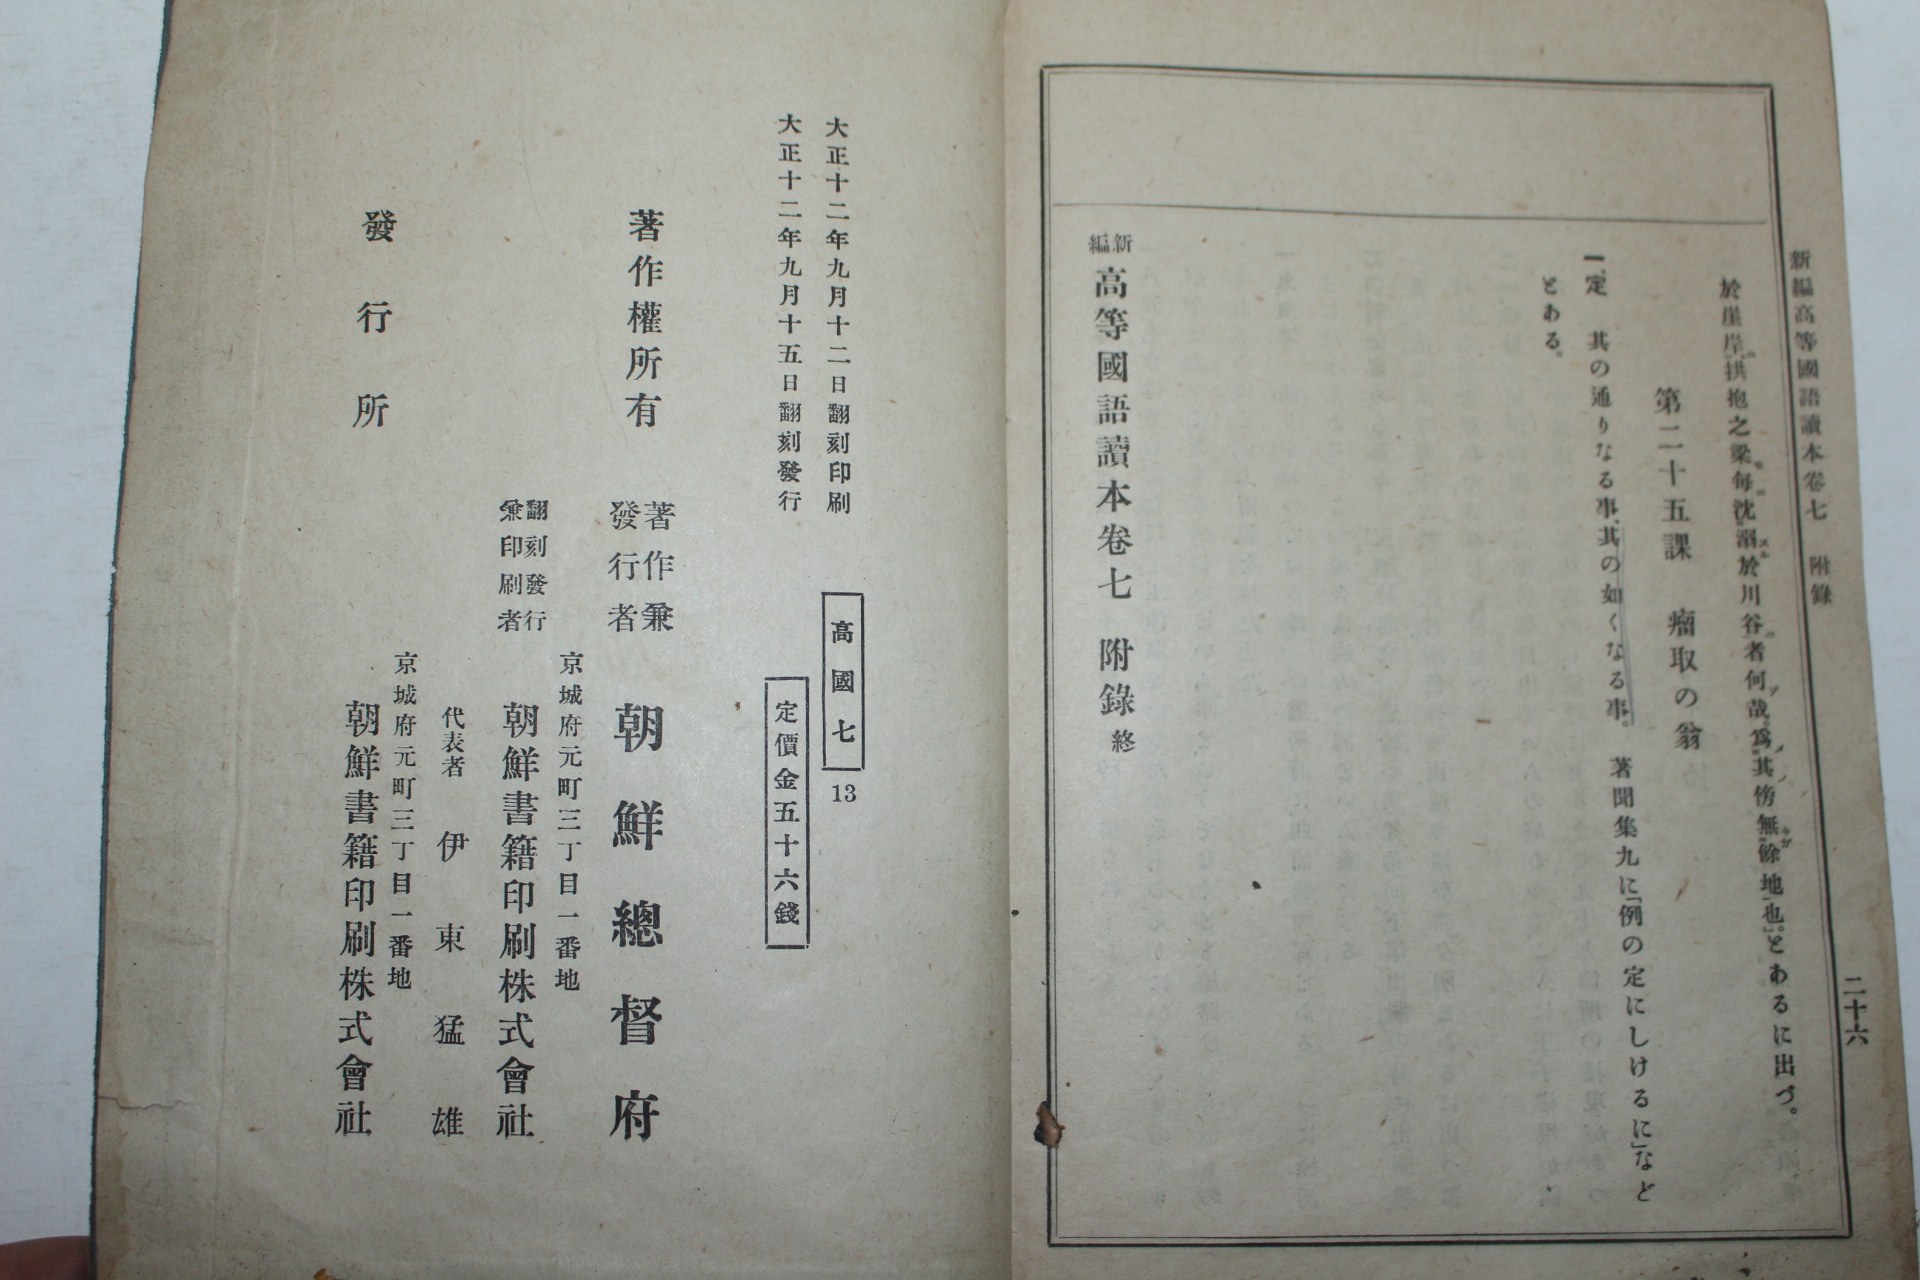 新編高等國語讀本卷七 附錄
二十六
於崖岸、拱抱之梁每沈溺於川谷者何哉、爲其傍無餘地也」。とあるに出づ。
第二十五課 瘤取の翁
一、定 其の通りなる事、其の如くなる事。 著聞集九に「例の定にしけるに」など
とある。
新編 高等國語讀本卷七 附錄 終
大正十二年九月十二日翻刻印刷
大正十二年九月十五日翻刻發行
高國七
13
定價金五十六錢
著作權所有
著作兼發行者
朝鮮總督府
京城府元町三丁目一番地
翻刻發行兼印刷者
朝鮮書籍印刷株式會社
代表者 伊東猛雄
京城府元町三丁目一番地
發行所
朝鮮書籍印刷株式會社